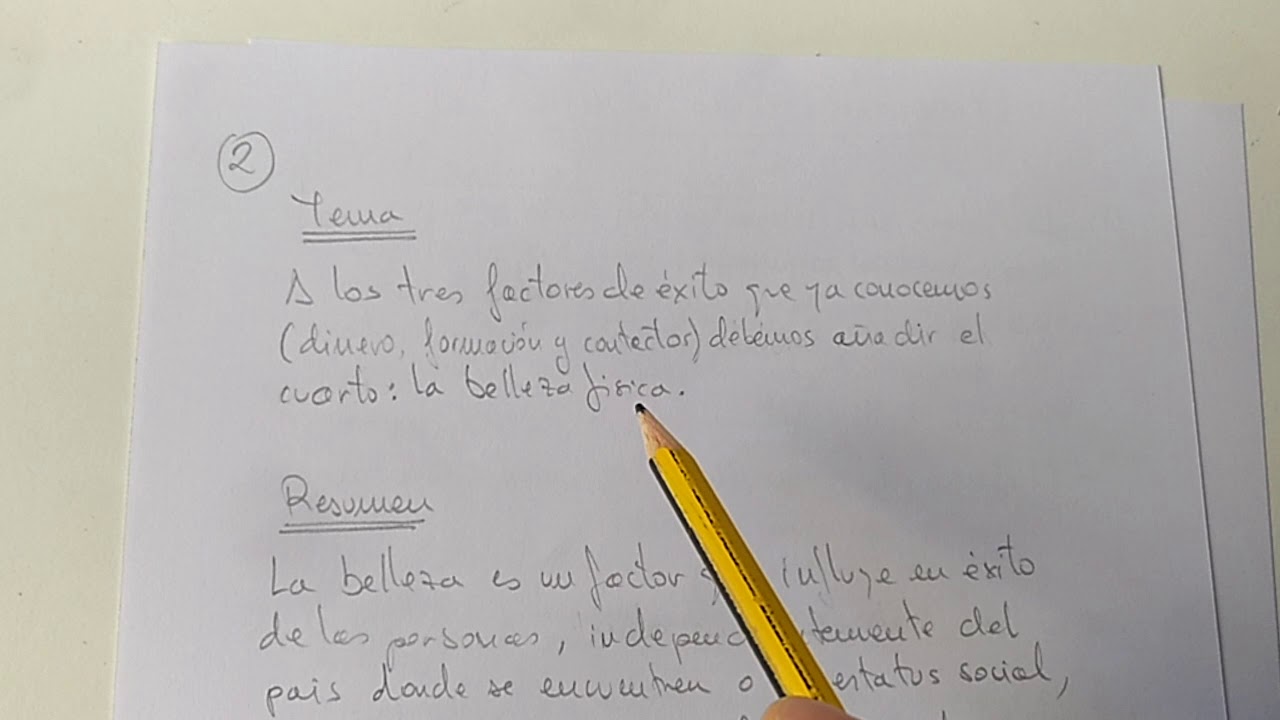 2
Tema
A los tres factores de éxito que ya conocemos
(dinero, formación y contactos) debemos añadir el
cuarto: la belleza física.
Resumen
La belleza es un factor influye en éxito
de las personas, independientemente del
pais donde se encuentren o estatus social,